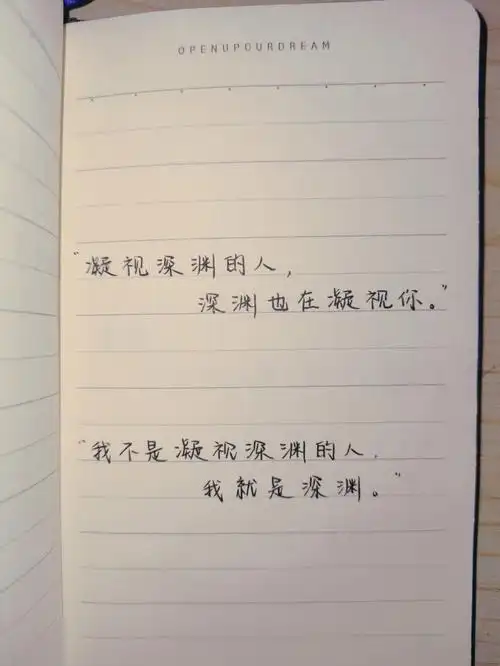 OPENUPOURDREAM
“凝视深渊的人，
深渊也在凝视你。”
“我不是凝视深渊的人，
我就是深渊。”